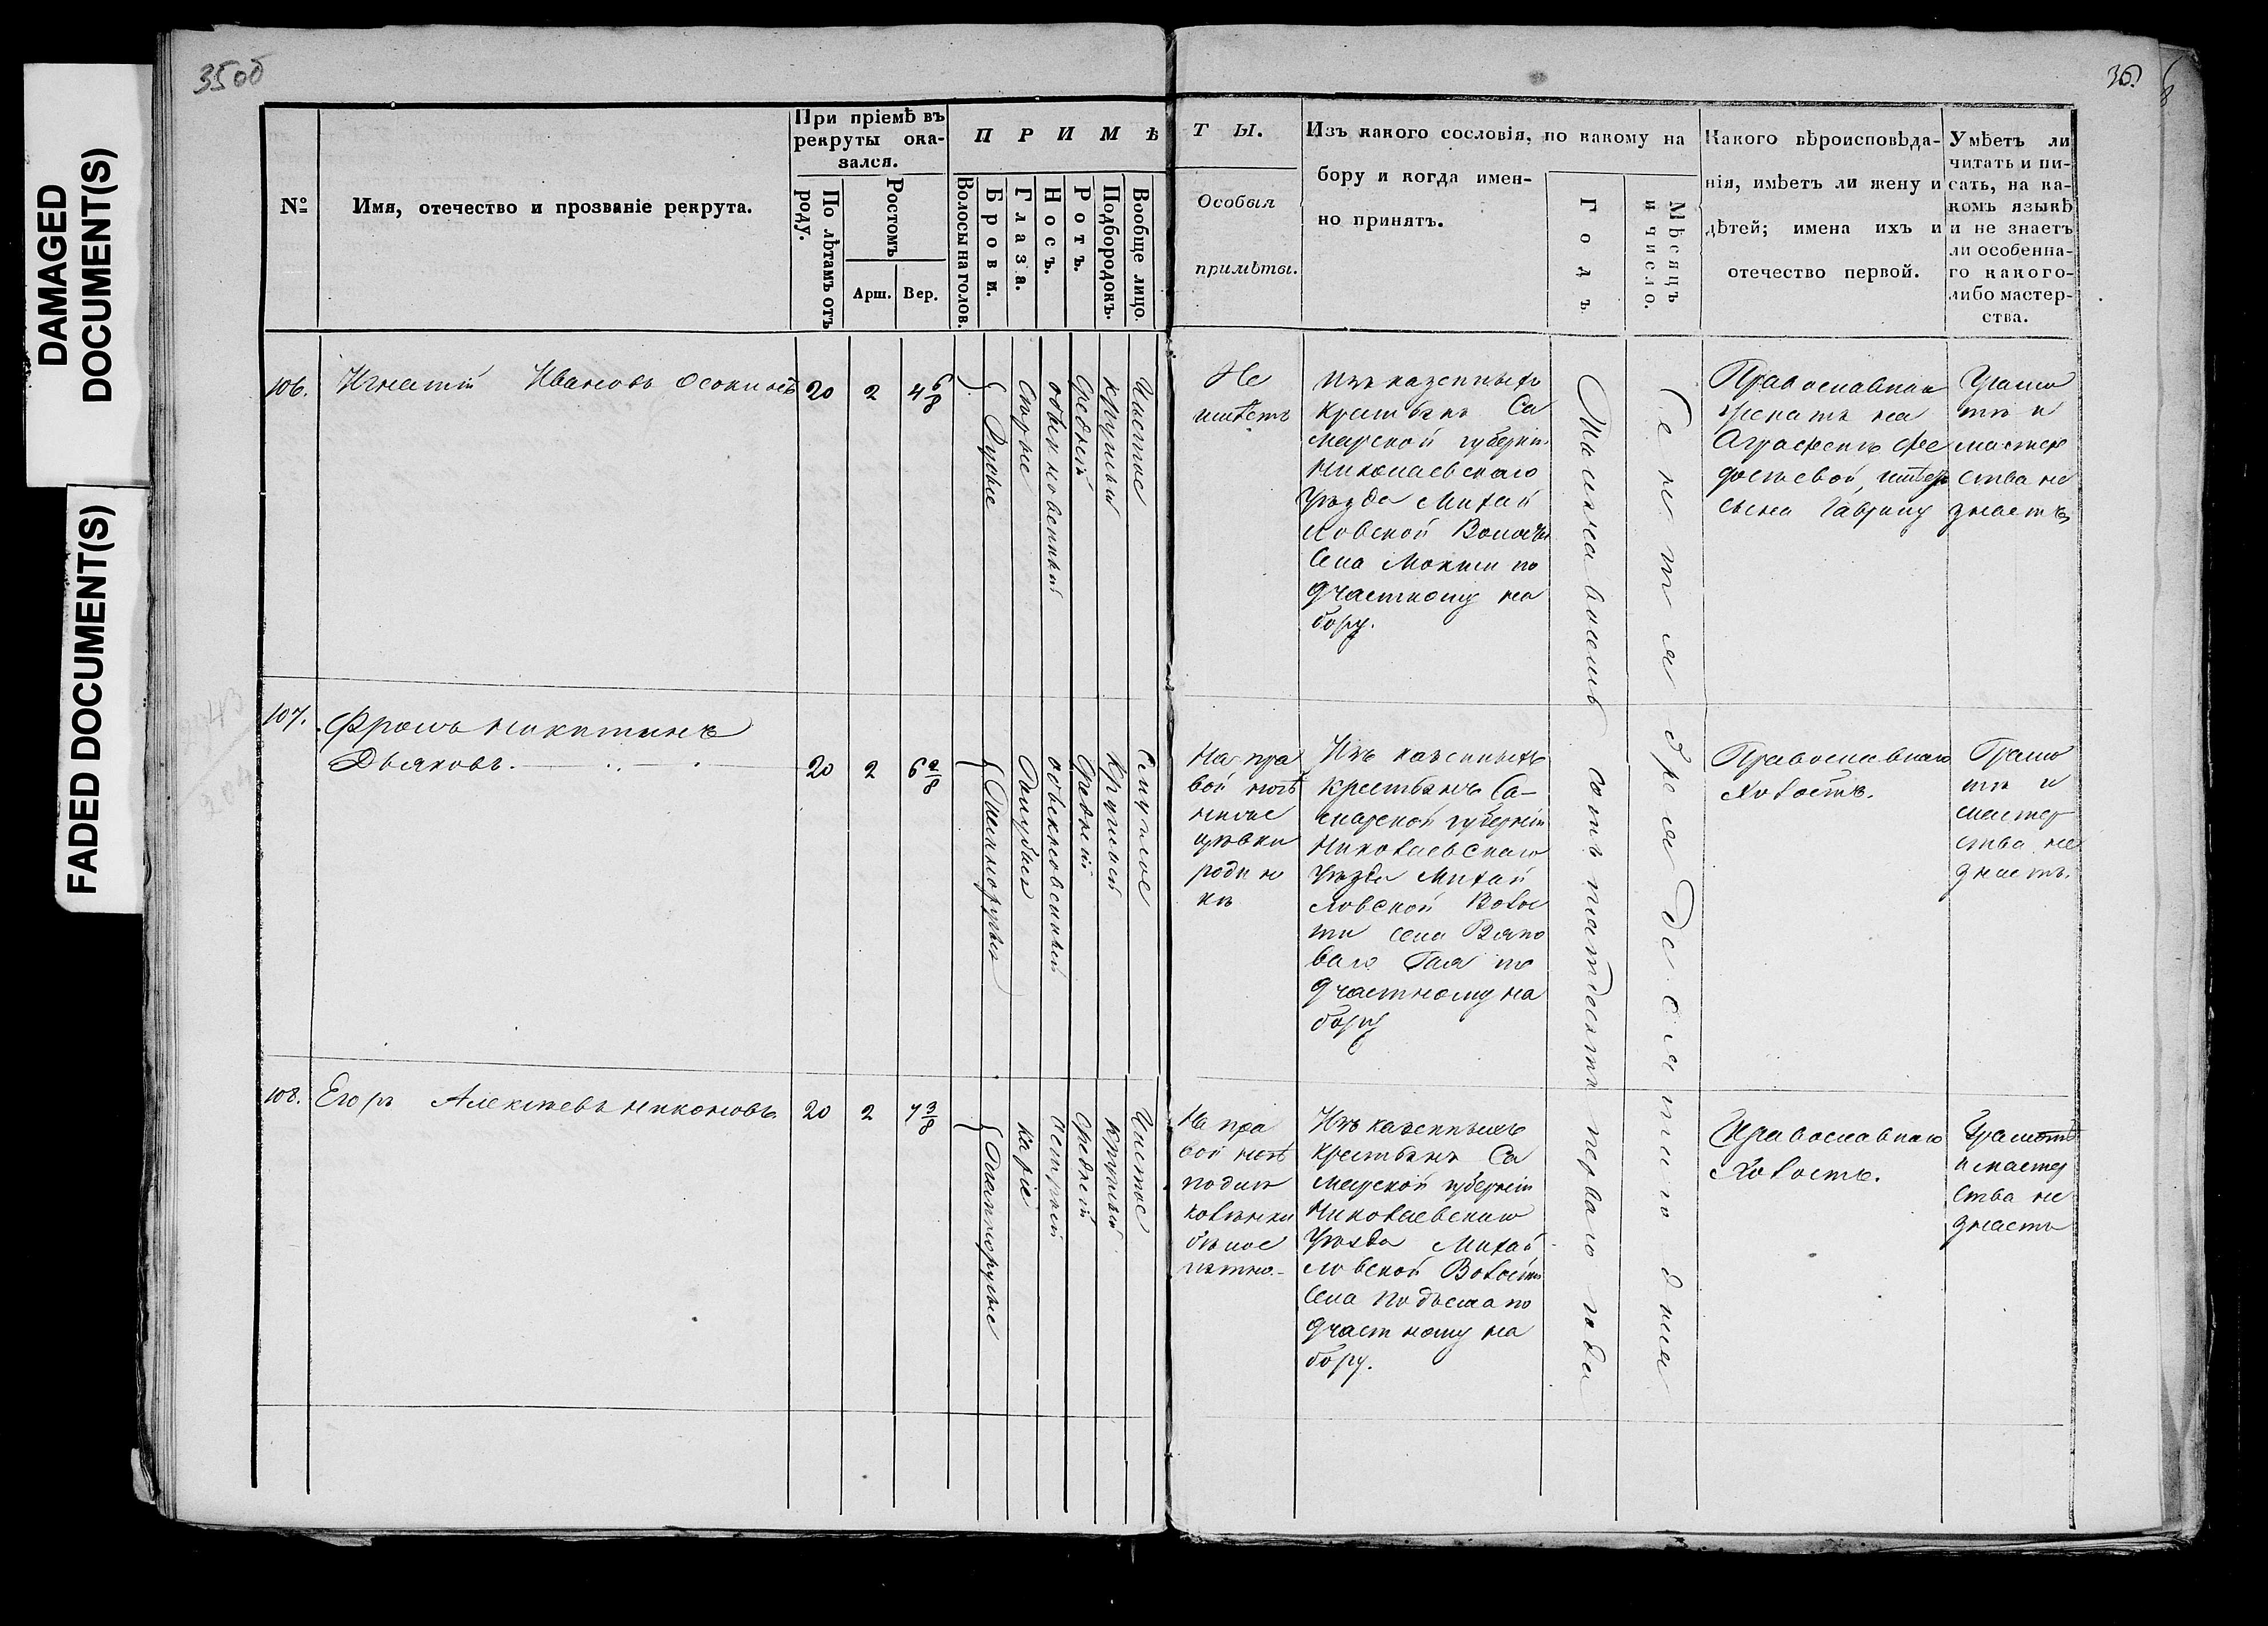 DAMAGED
DOCUMENT(S)
FADED DOCUMENT(S)
35об
36
№
Имя, отечество и прозваніе рекрута.
При пріемѣ въ
рекруты ока-
зался.
По лѣтамъ отъ
роду.
Ростомъ
Арш.
Вер.
ПРИМѢ
Волосы на голов.
Брови.
Глаза.
Носъ.
Ротъ.
Подбородокъ.
Вообще лицо.
ТЫ.
Особыя
примѣты.
Изъ какого сословія, по какому на
бору и когда имен-
но принятъ.
Годъ
Мѣсяцъ
и число.
Какого вѣроисповѣда-
нія, имѣетъ ли жену и
дѣтей; имена ихъ и
отечество первой.
Умѣетъ ли
читать и пи-
сать, на ка-
комъ языкѣ
и не знаетъ
ли особенна-
го какого-
либо мастер-
ства.
106.
Игнатій Ивановъ Осокинъ
20
2
4 6/8
Русые
Сѣрые
обыкновенный
средній
круглый
Чистое
Не
имѣетъ
Изъ казенныхъ
крестьянъ Са
марской губерніи
Николаевскаго
Уѣзда Михай
ловской Волости
Села Мокши по
участному на
бору.
Тысяча восемь сотъ пятьдесятъ перваго года
Сентября десятаго дня
Православнаго
женатъ на
Аграфенѣ Фе
досѣевой, имѣетъ
сына Гаврилу
Грамо
тѣ и
мастер
ства не
знаетъ
107.
Фролъ Никитинъ
Дьяковъ.
20
2
6 2/8
Темнорусые
Голубые
обыкновенный
Средній
Круглый
Смуглое
На пра
вой ногѣ
ниже
родин
ка
Изъ казенныхъ
крестьянъ Са-
марской губерніи
Николаевскаго
Уѣзда Михай
ловской Волос
ти села Вязо
ваго Гая по
участному на
бору
Православнаго
Холостъ.
Грамо
тѣ и
мастер
ства не
знаетъ.
108.
Егоръ Алексѣевъ Никоновъ
20
2
7 3/8
Темнорусые
Каріе
острый
средній
круглый
Чистое
На пра
вой ногѣ
подлѣ
колѣнки
бѣлое
пятно.
Изъ казенныхъ
Крестьянъ Са
марской губерніи
Николаевскаго
Уѣзда Михай
ловской Волости
Села Подъема по
участному на
бору.
Православнаго
Холостъ.
Грамотѣ
и мастер
ства не
знаетъ